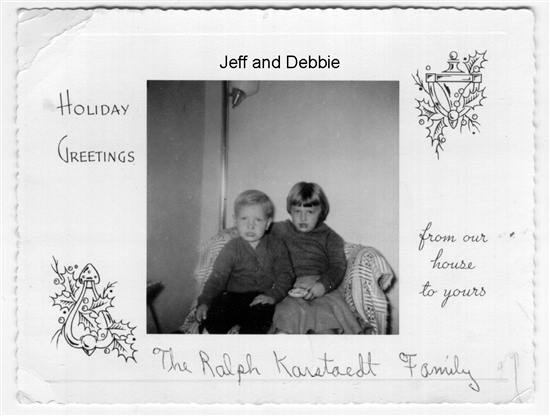 Jeff and Debbie
HOLIDAY
GREETINGS
from our
house
to yours
The Ralph Karstaedt Family